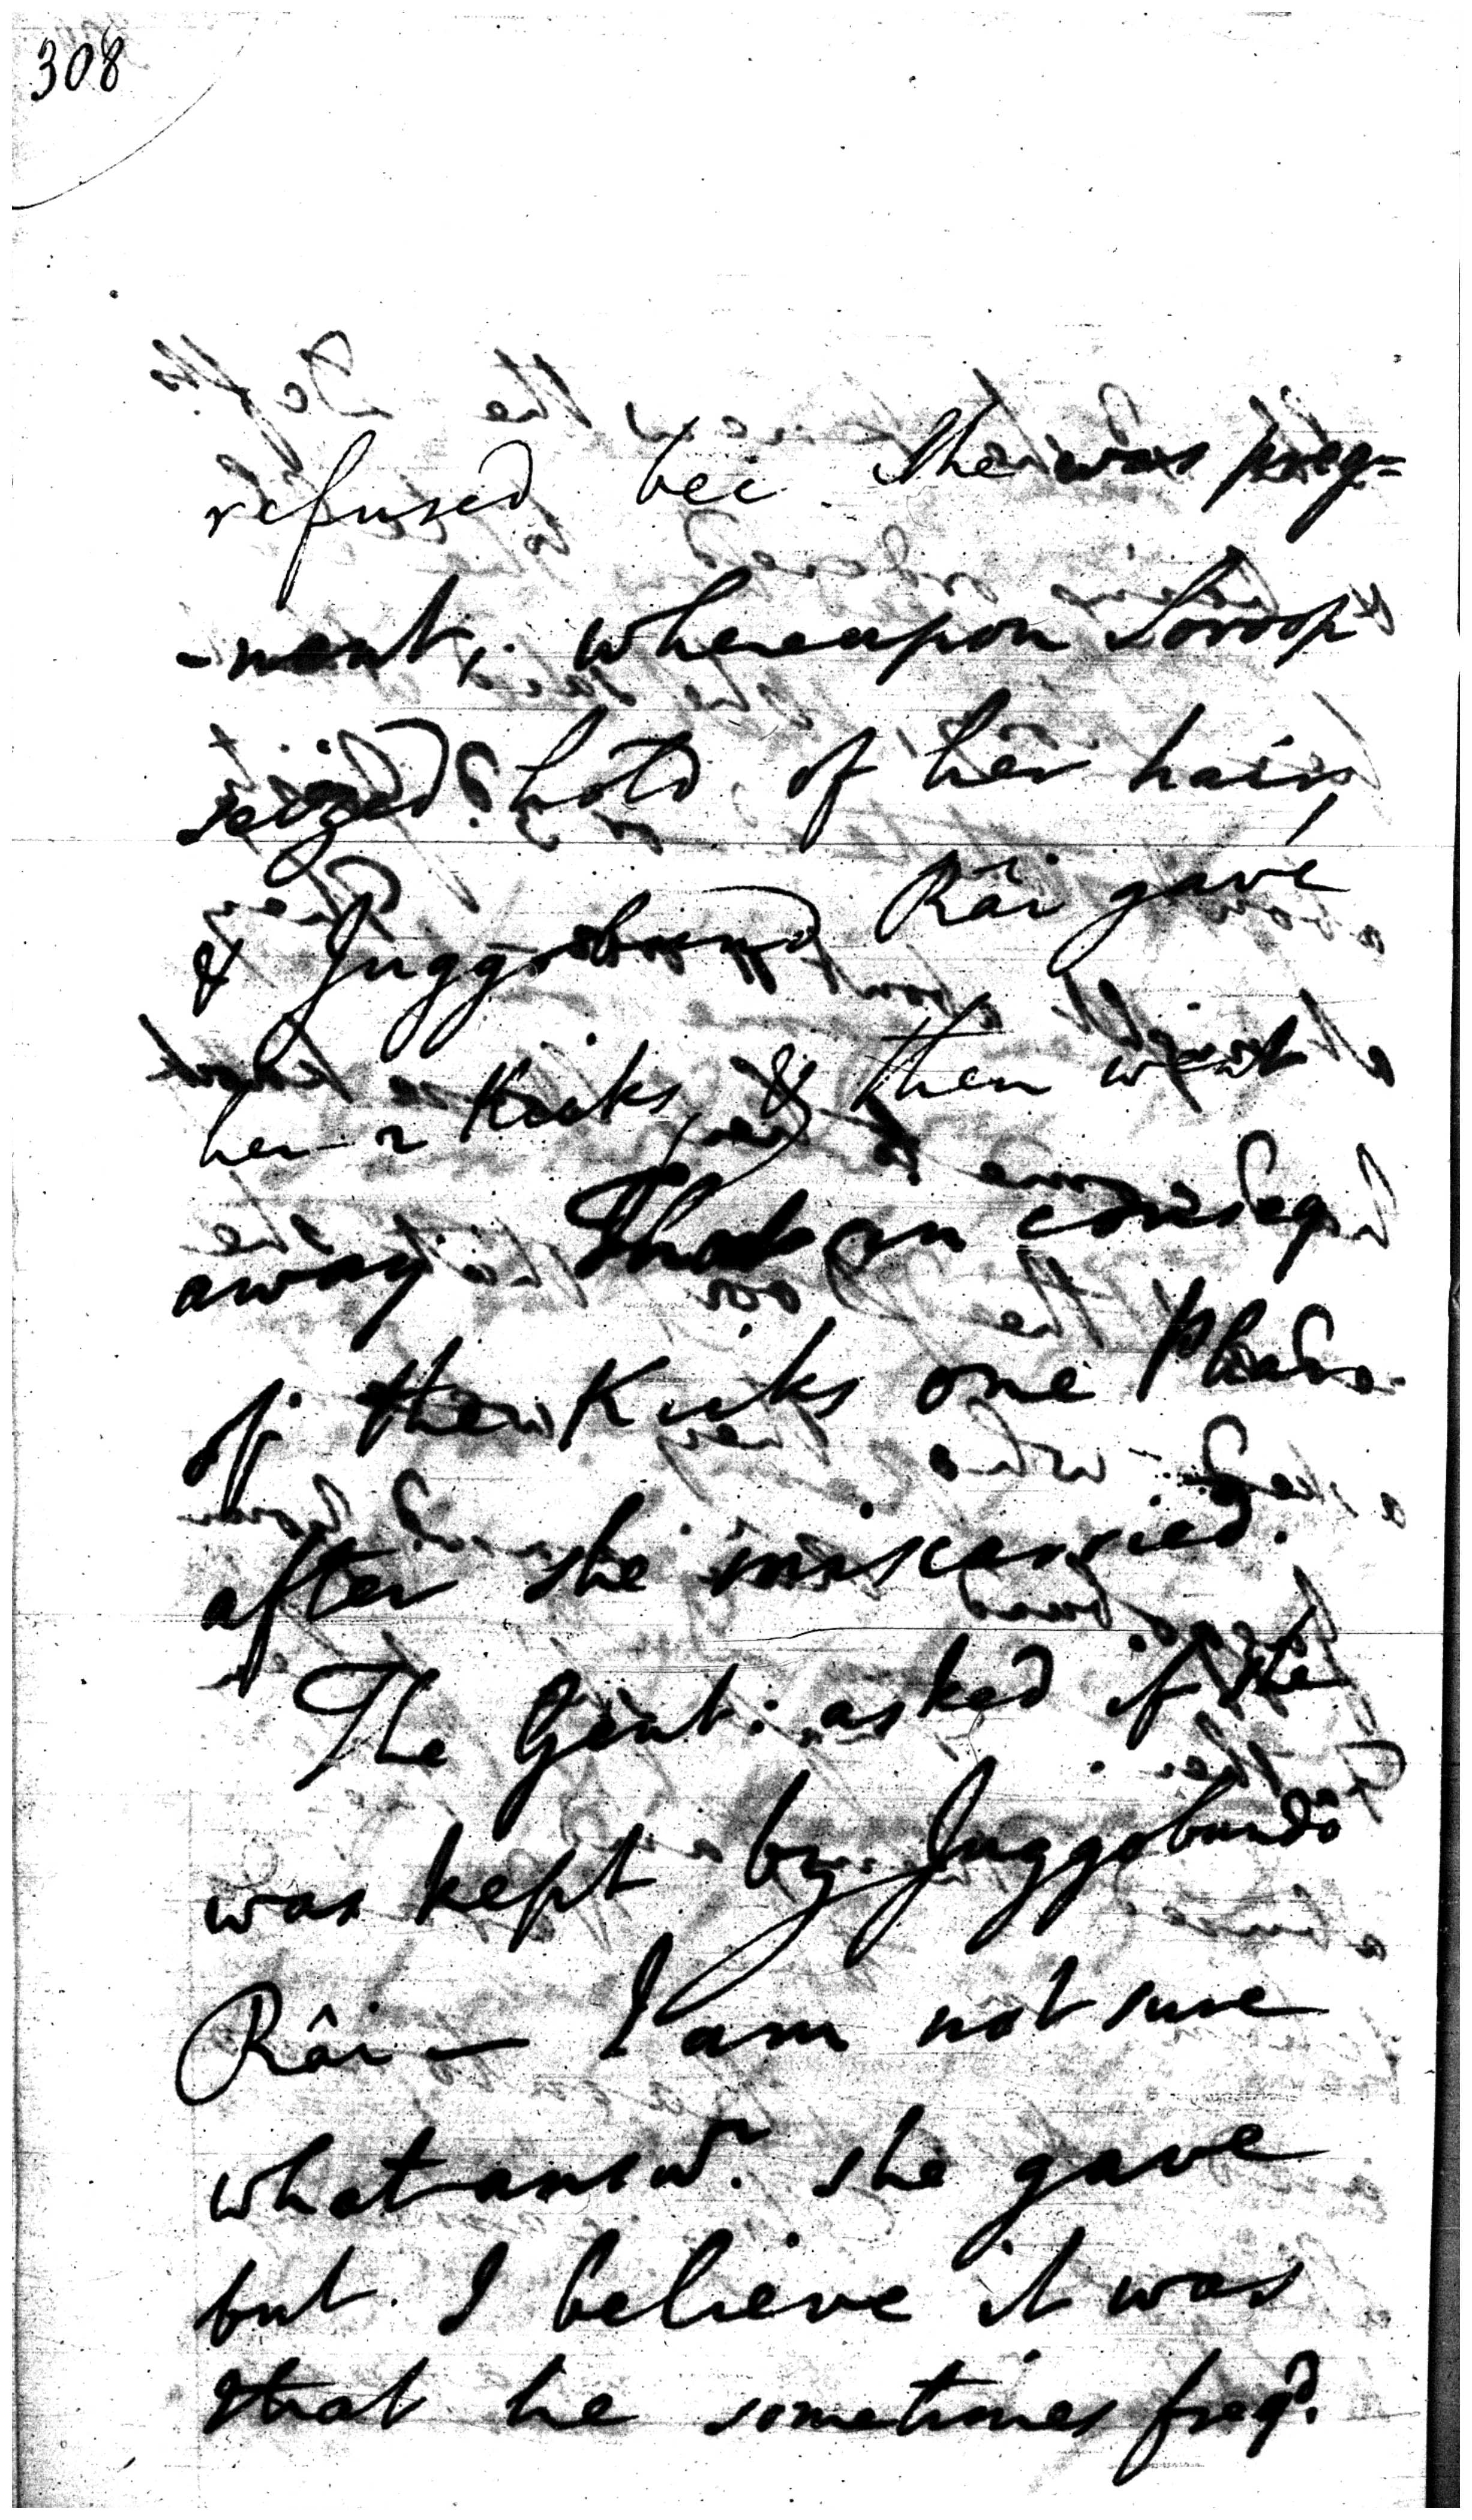 308
refused bec. she was preg=
-nant, whereupon Soroop
seized hold of her hair,
& Juggobund Râi gave
her 2 Kicks, & then went
away. That in conseq
of the Kicks one
after she miscarried.
The Gent: asked if she
was kept by Juggobundô
Râi — I am not sure
what answr. she gave
but I believe it was
that he sometimes freqd.